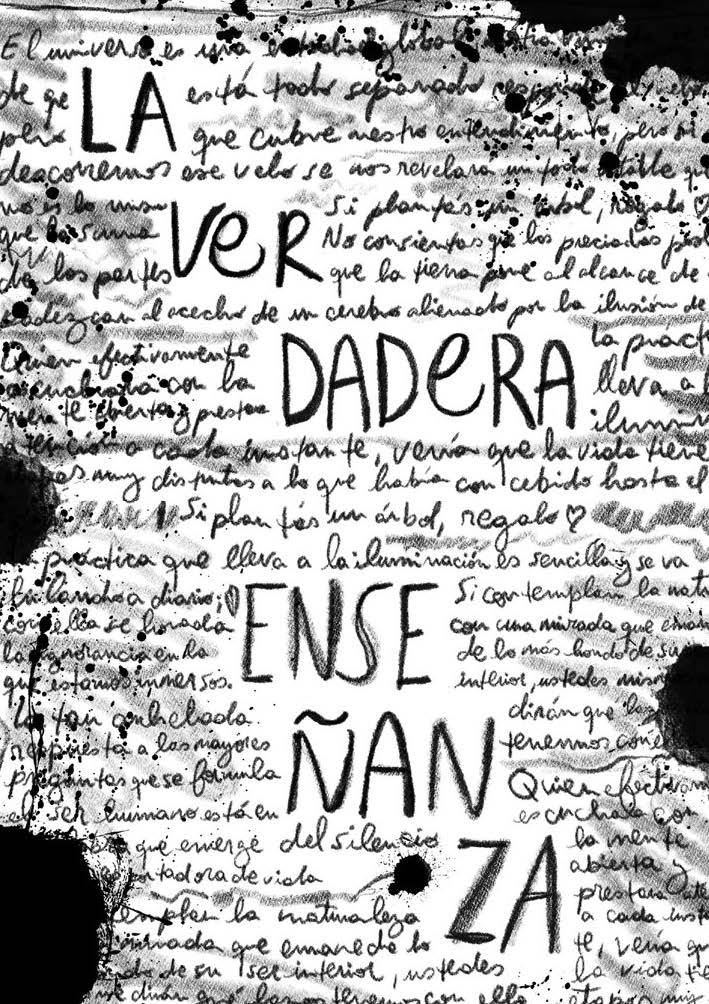 El universo es una
LA está todo separado
que cubre nuestro entendimiento, pero si
descorremos ese velo se nos revelara un todo
no es lo mismo VER Si plantas un árbol, regalo ♡
que la suma No consientas que los preciados
de las partes que la tierra pone al alcance de
al acecho de un cerebro alienado por la ilusión de
Quien efectivamente DADERA la práct
escuchara con la lleva a l
mente abierta y prestara ilumin
atención a cada instante, vería que la vida tiene
muy distintas a lo que había concebido hasta el
Si plantas un árbol, regalo ♡
práctica que lleva a la iluminación es sencilla y se va
hilando a diario; ENSE Si contemplan la natu
con ella se horada con una mirada que eman
la ignorancia en la de lo más hondo de su
que estamos inmersos. interior, ustedes mism
La tan anhelada ÑAN dirán que
respuesta a las mayores tenemos con
preguntas que se formula Quien efectivam
el ser humano está en escuchara con
que emerge del silencio ZA la mente
portadora de vida abierta y
emplan la naturaleza prestara ate
mirada que emane de lo a cada inst
do de su ser interior, ustedes te, vería qu
me dirán qué lazos tenemos con ella la vida tie
muy